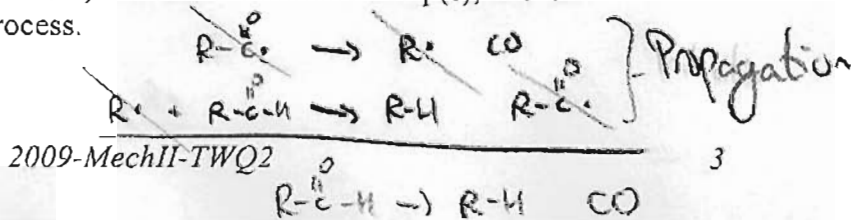 rocess.
R-C(=O)• → R• CO
R• + R-C(=O)-H → R-H R-C(=O)• } Propagation
2009-MechII-TWQ2 3
R-C(=O)-H → R-H CO